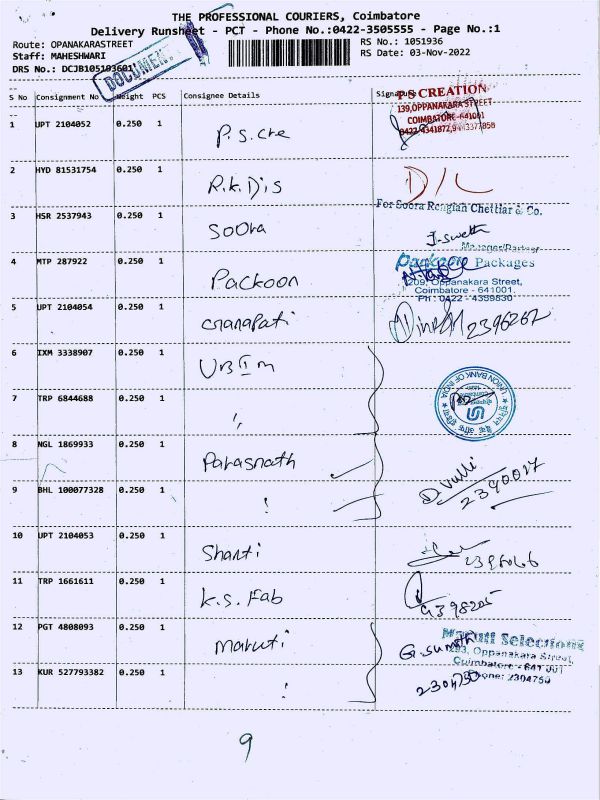 THE PROFESSIONAL COURIERS, Coimbatore
Delivery Runsheet - PCT - Phone No.:0422-3505555 - Page No.:1
Route: OPANAKARASTREET RS No.: 1051936
Staff: MAHESHWARI RS Date: 03-Nov-2022
DRS No.: DCJB105193601
DOCUMENT
S No Consignment No Weight PCS Consignee Details Signature
P S CREATION
139,OPPANAKARA STREET
COIMBATORE-641001
1 UPT 2104052 0.250 1 P.S.Cre
2 HYD 81531754 0.250 1 R.K.Dis D/C
For Soora Rengian Chettiar & Co.
3 HSR 2537943 0.250 1 Soora
Manager/Partner
4 MTP 287922 0.250 1 Packoon Packoon Packages
209, Oppanakara Street,
Coimbatore - 641001.
Ph : 0422 - 4359830
5 UPT 2104054 0.250 1 Ganapati 2396262
6 IXM 3338907 0.250 1
7 TRP 6844688 0.250 1 "
UNION BANK OF INDIA
8 NGL 1869933 0.250 1 Parasnath
9 BHL 100077328 0.250 1 "
2390017
10 UPT 2104053 0.250 1 Shanti
11 TRP 1661611 0.250 1 K.S. Fab
12 PGT 4808093 0.250 1 Maruti G. Sumathi
Maruti Selections
293, Oppanakara Street,
Coimbatore - 641 001
Phone: 2304750
13 KUR 527793382 0.250 1 " 2304750
9